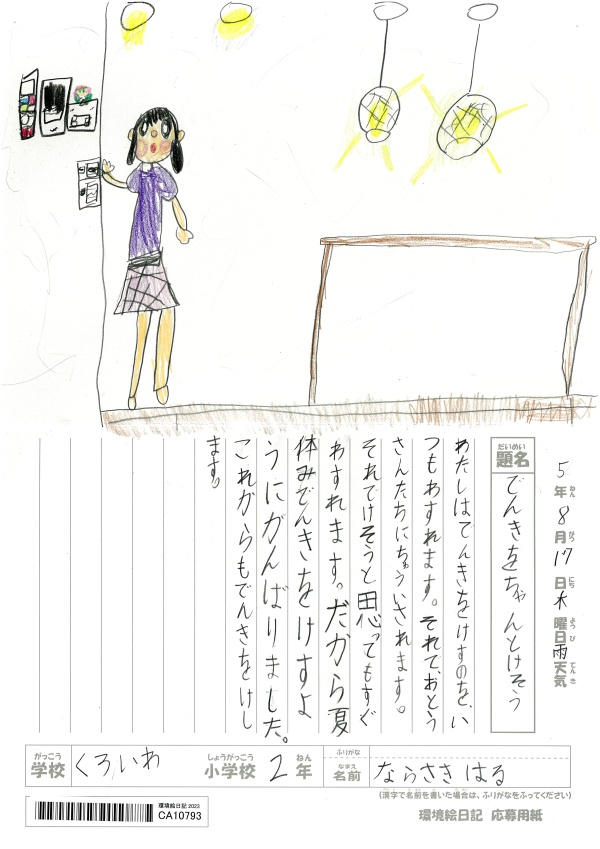 5年8月17日木曜日雨天気
ねん
がつ
にち
ようび
てんき
だいめい
題名
でんきをちゃんとけそう
わたしはてんきをけすのを、い
つもわすれます。それで、おとう
さんたちにちゅういされます。
それでけそうと思ってもすぐ
わすれます。だから夏
休みでんきをけすよ
うにがんばりました。
これからもでんきをけし
ます。
がっこう
学校
くろいわ
しょうがっこう
小学校
2
ねん
年
ふりがな
なまえ
名前
ならさきはる
(漢字で名前を書いた場合は、ふりがなをふってください)
環境絵日記 2023
CA10793
環境絵日記 応募用紙